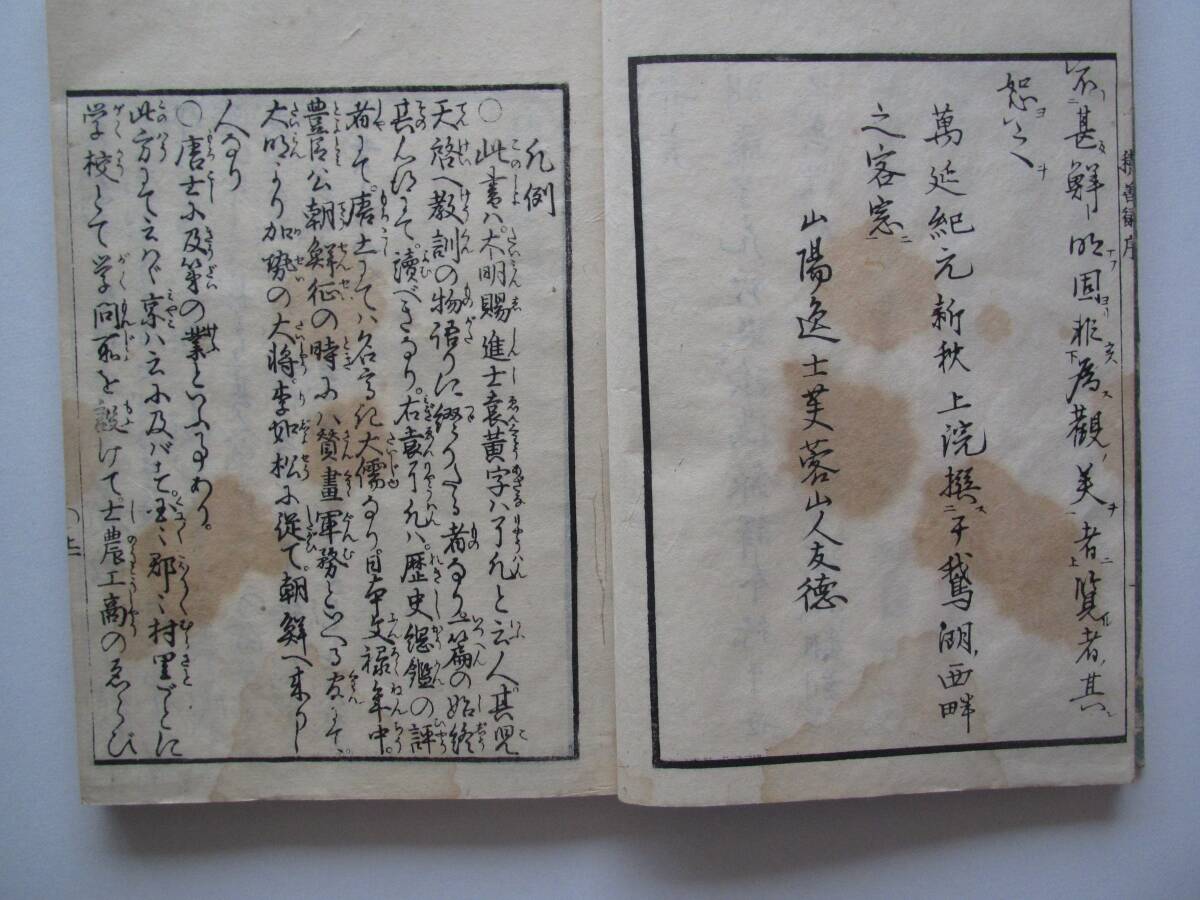 不甚鮮明固非為観美者覧者其
恕之
萬延紀元新秋上浣撰于鵞湖西畔
之客窓
山陽逸士芙蓉山人友徳
凡例
○此書ハ大明賜進士袁黄字ハ了凡と云人其児
天啓へ教訓の物語りに綴りたる者なり一篇の始終
其心得にて讀べきなり。右袁了凡ハ歴史綱鑑の評
者にて。唐土にてハ名高き大儒なり日本文禄年中。
豊臣公朝鮮征の時にハ賛畫軍務といへる官にて。
大明より加勢の大将李如松に従て。朝鮮へ来りし
人なり
○唐土に及第の業といふ事あり。
此方にて云ハヾ京ハ云に及バず。国〻郡〻村里ごとに
学校とて学問所を設けて。士農工商のゑらび